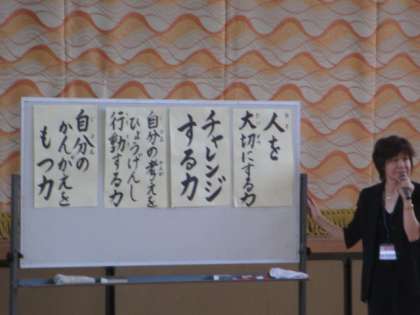 人を
大切にする力
チャレンジ
する力
自分の考えを
ひょうげんし
行動する力
自分の
かんがえを
もつ力